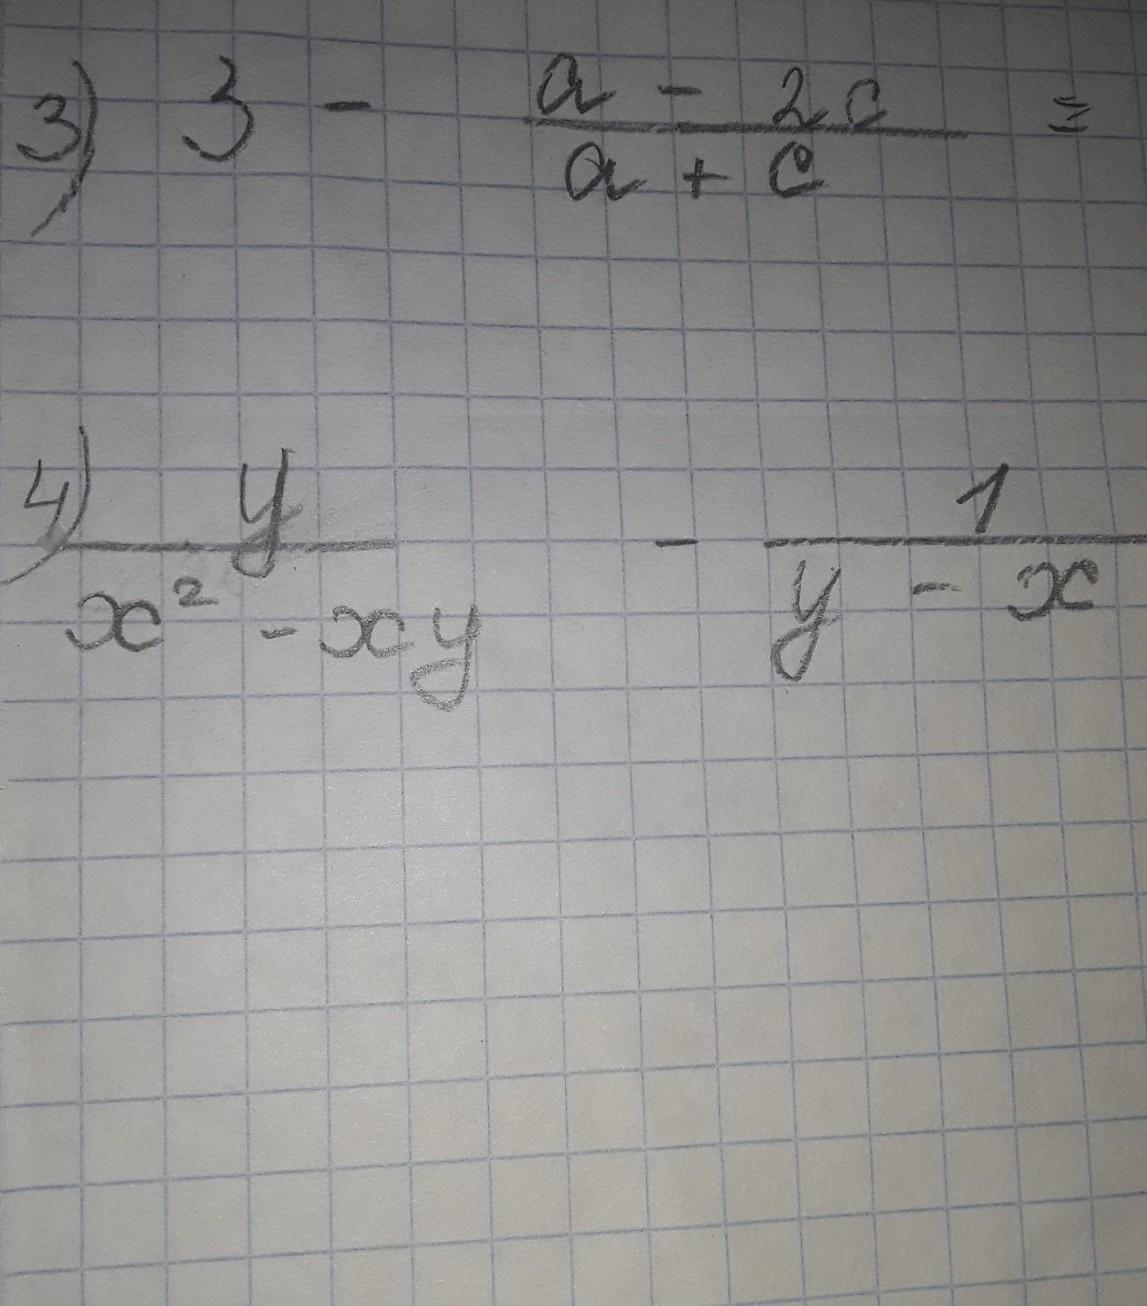 3) 3 - \frac{a - 2c}{a + c} =
4) \frac{y}{x² - xy} - \frac{1}{y - x}